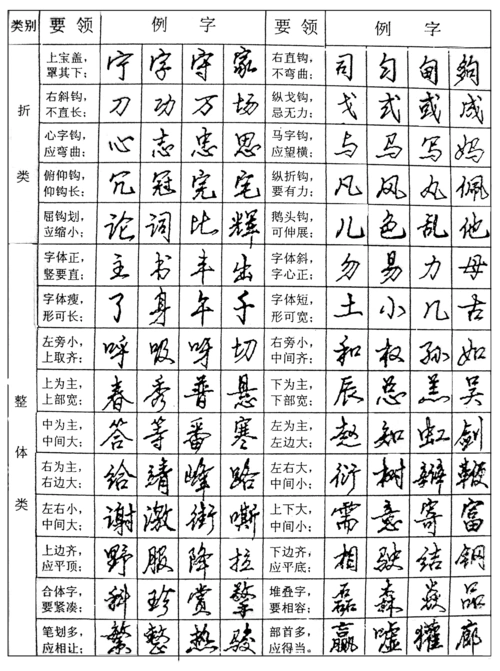 类别 要领 例字 要领 例字
折类
上宝盖，罩其下： 宁 字 守 家 右直钩，不弯曲： 司 匀 甸 夠
右斜钩，不直长： 刀 功 万 场 纵戈钩，忌无力： 戈 式 或 成
心字钩，应弯曲： 心 志 忠 思 马字钩，应望横： 与 马 写 妈
俯仰钩，仰钩长： 冗 冠 完 宅 纵折钩，要有力： 凡 凤 丸 佩
屈钩划，应缩小： 论 词 比 辉 鹅头钩，可伸展： 儿 色 乱 他
整体类
字体正，竖要直： 主 书 丰 出 字体斜，字心正： 勿 易 力 母
字体瘦，形可长： 了 身 午 千 字体短，形可宽： 土 小 几 古
左旁小，上取齐： 呼 吸 呀 切 右旁小，中间齐： 和 权 孙 如
上为主，上部宽： 春 秀 普 悬 下为主，下部宽： 辰 总 羔 吴
中为主，中间大： 答 等 番 寒 左为主，左边大： 赵 知 虹 剑
右为主，右边大： 给 靖 峰 路 左右大，中间小： 衍 树 辩 鞭
左右小，中间大： 谢 激 街 嘶 上下大，中间小： 需 意 寄 富
上边齐，应平顶： 野 服 降 拉 下边齐，应平底： 相 驶 结 钢
合体字，要紧凑： 科 珍 赏 擎 堆叠字，要相容： 磊 森 焱 品
笔划多，应相让： 繁 整 热 骏 部首多，应得当。 赢 嘘 獾 廊